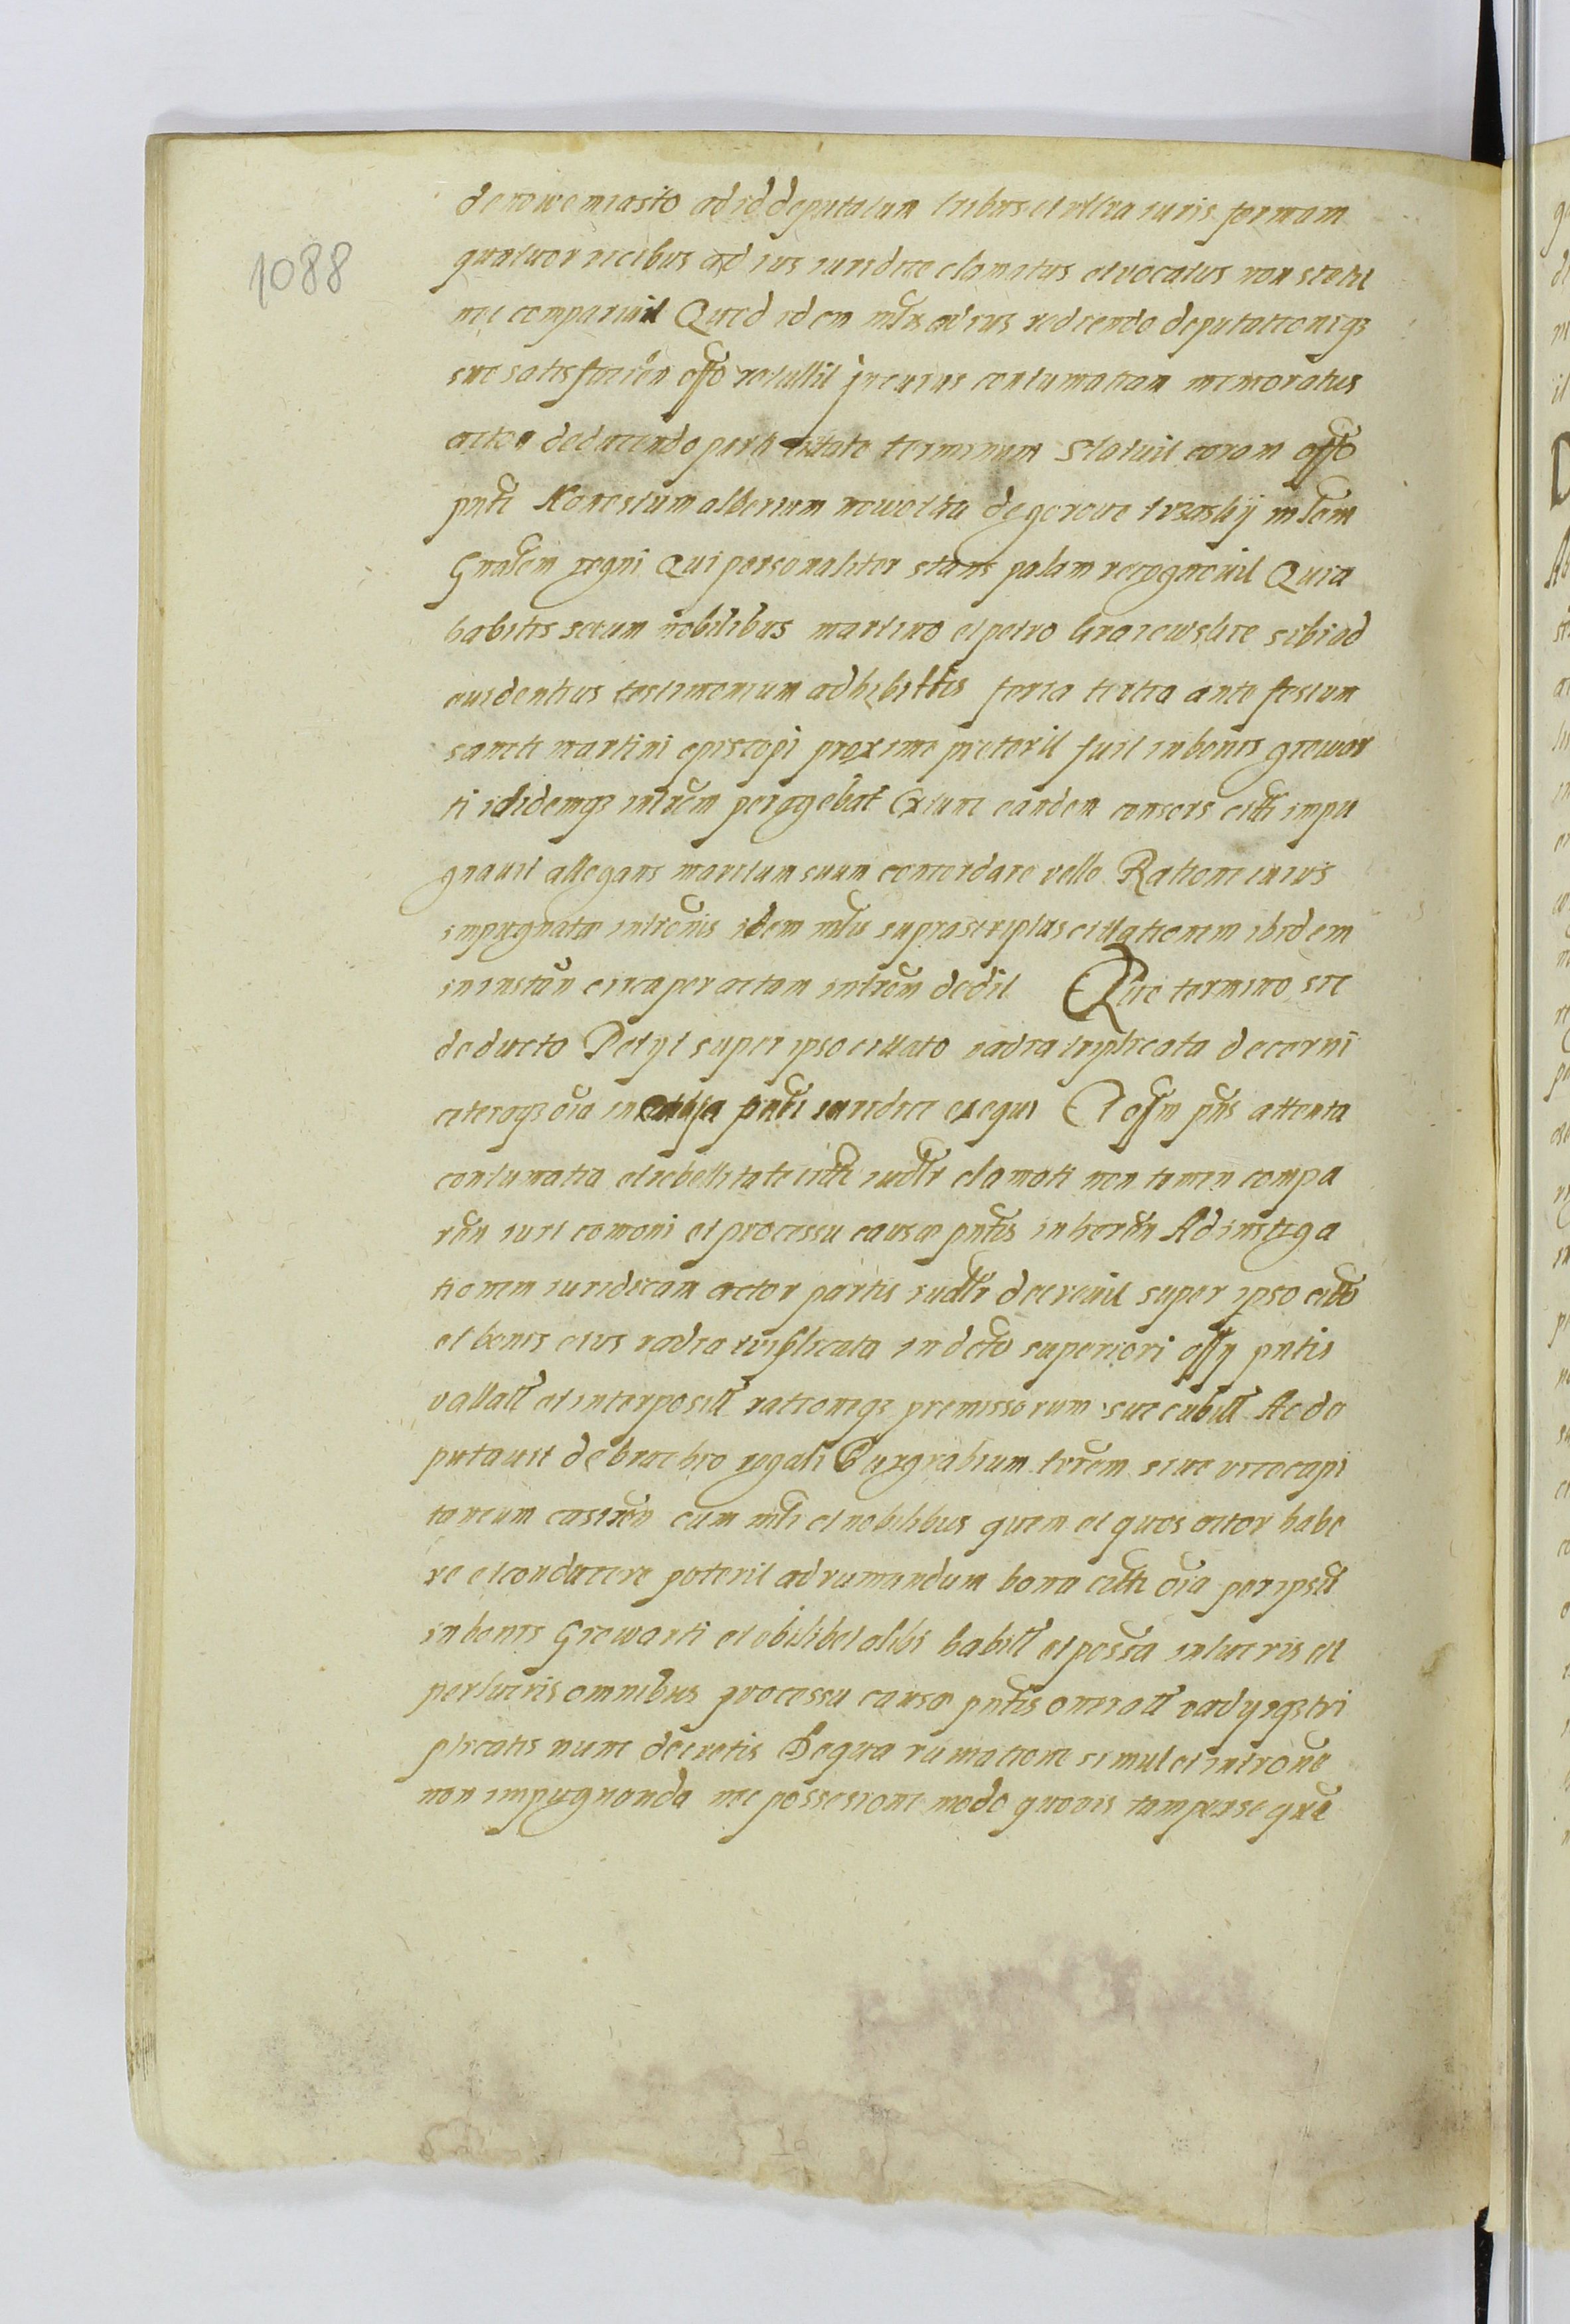 1088
de nowemiasto ad id deputatum tribus et ultra iuris formam
quatuor vicibus ad ius iuridice clamatus et vocatus non stetit
nec comparuit Quod idem mlris ad ius rediendo deputationiqz
sue satisfecien offo retullit In cuius contumatiam memoratus
actor deducendo parti citate terminum Statuit coram offo
pnti Honestum albertum nowoltha de gorowe trzaskij mlrem
Gnalem regni Qui personaliter stans palam recognovit Quia
habitis secum nobilibus martino et petro Graiewskie sibi ad
euidentius testimonium adhibittis feria tertia ante festum
sancti martini episcopi proxime preterit fuit in bonis grewar
ti ididemqz intrem peragebat Extunc eandem consors citti impu
gnauit allegans maritum suum concordare velle Ratione cuius
impugnatæ intronis idem mlris suprascriptus cittationem ibidem
in instan circa peractam intrem dedit Quo termino sic
deducto Petyt super ipso cittato vadia triplicata decerni
ceteraqz oia in causa pnti iuridice exequi Et offm pns attenta
contumatia et rebellitate citti iudlr clamati non tamen compa
ren iuri comoni et processu causæ pntis in heren Ad instiga
tionem iuridicam actor partis iudlr decreuit super ipso citto
et bonis eius vadia triplicata in dcto superiori offy pntis
vallatt et interpositt rationeqz premissorum succubitt Ac de
putauit de brachio regali Burgrabium trrem siue vicecapi
taneum castren cum mlri et nobilibus quem et quos actor habe
re et conducere poterit ad rumandum bona citti oia per ipsu
in bonis Grewarti et ubilibet alibi habitt et possa in lucris et
perlucris omnibus processu causæ pntis oneratt vadysqz tri
plicatis nunc decretis Sequta rumatione simul et introne
non impugnanda nec possesione modo quovis tam per se que